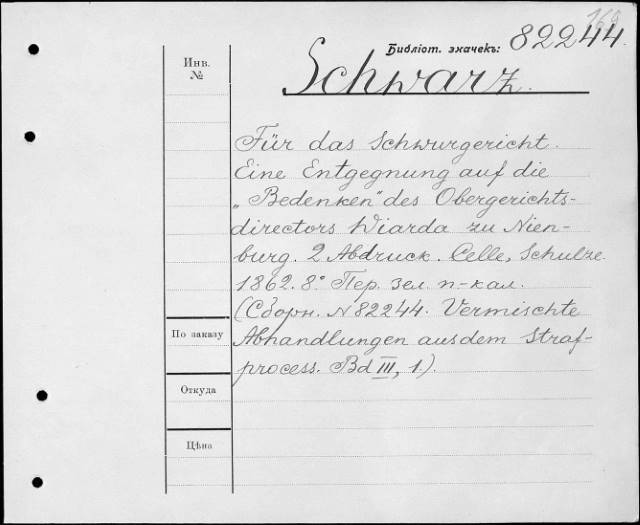 168
Библіот. значекъ: 82244.
Schwarz.
Инв.
№
Für das Schwurgericht.
Eine Entgegnung auf die
„Bedenken" des Obergerichts-
directors Wiarda zu Nien-
burg. 2 Abdruck. Celle, Schulze.
1862. 8° Пер. зел. п-кал.
(Сборн. N 82244. Vermischte
Abhandlungen aus dem Straf-
process. Bd III, 1.).
По заказу
Откуда
Цѣна